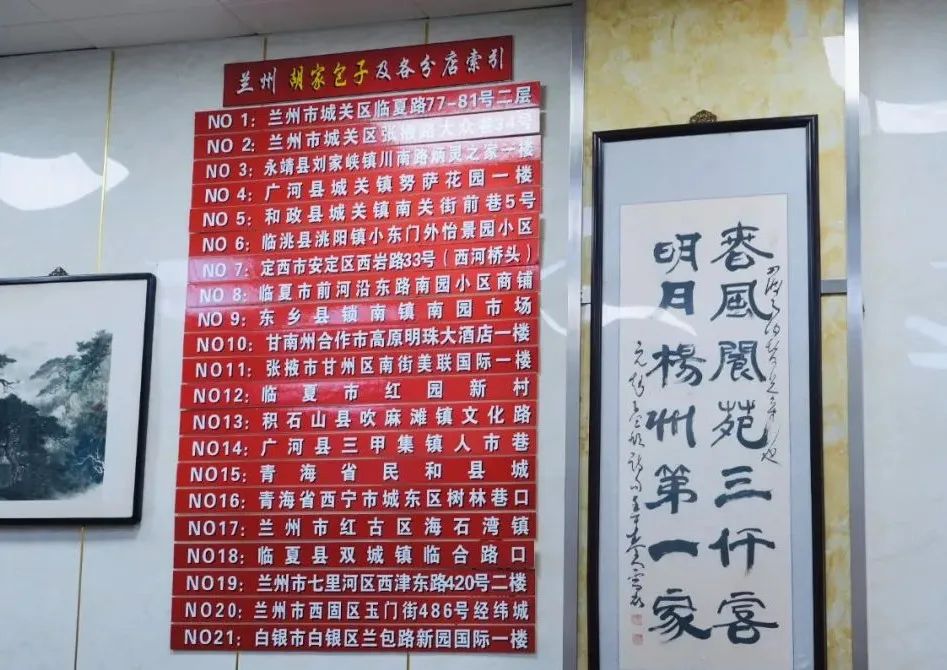 兰州 胡家包子及各分店索引
NO 1：兰州市城关区临夏路77-81号二层
NO 2：兰州市城关区张掖路大众巷34号
NO 3：永靖县刘家峡镇川南路炳灵之家一楼
NO 4：广河县城关镇努萨花园一楼
NO 5：和政县城关镇南关街前巷5号
NO 6：临洮县洮阳镇小东门外怡景园小区
NO 7：定西市安定区西岩路33号（西河桥头）
NO 8：临夏市前河沿东路南园小区商铺
NO 9：东乡县锁南镇南园市场
NO10：甘南州合作市高原明珠大酒店一楼
NO11：张掖市甘州区南街美联国际一楼
NO12：临夏市红园新村
NO13：积石山县吹麻滩镇文化路
NO14：广河县三甲集镇人市巷
NO15：青海省民和县城
NO16：青海省西宁市城东区树林巷口
NO17：兰州市红古区海石湾镇
NO18：临夏县双城镇临合路口
NO19：兰州市七里河区西津东路420号二楼
NO20：兰州市西固区玉门街486号经纬城
NO21：白银市白银区兰包路新园国际一楼
春风阆苑三仟客
明月杨州第一家